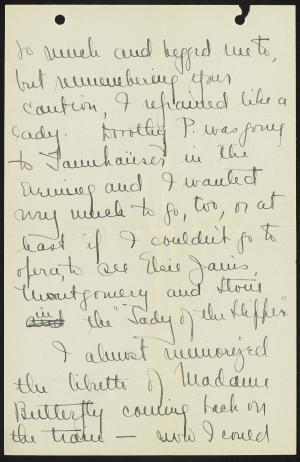 so much and begged me to,
but remembering your
caution, I refrained like a
lady. Dorothy P. was going
to Tannhaüser in the
Evening and I wanted
very much to go, too, or at
least if I couldn't go to
opera, to see Elsie Janis,
Montgomery and Stone
in the "Lady of the Slipper"
I almost memorized
the libretto of Madame
Butterfly coming back on
the train — now I could